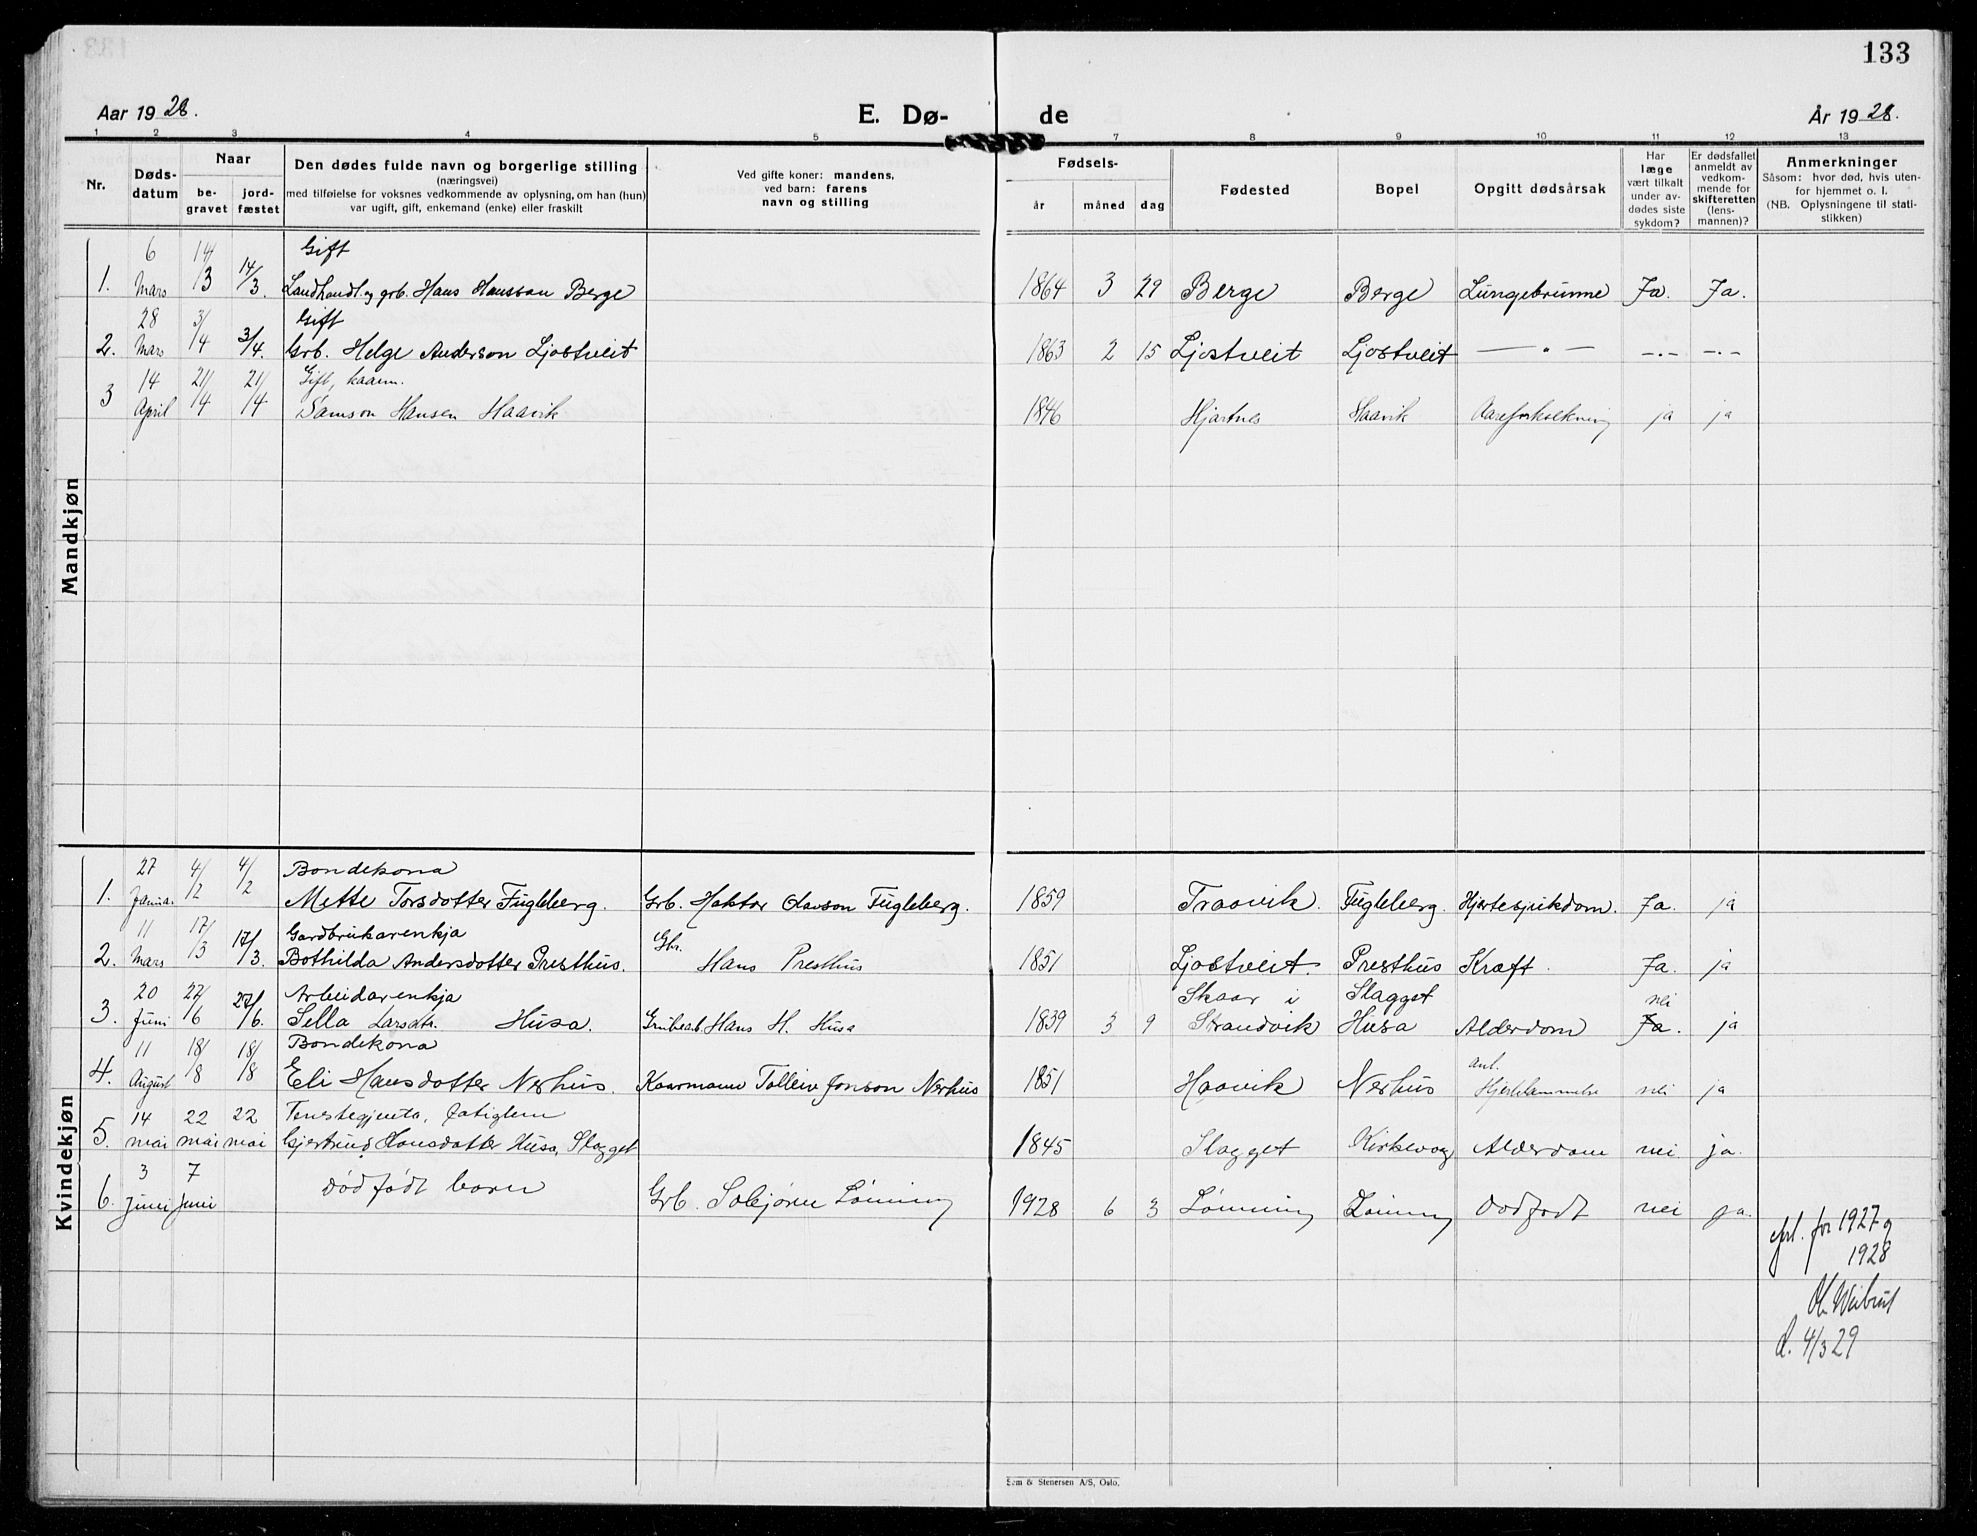 133
Aar 1928.
E. Dø-
de
År 1928.
1 2 3 4 5 7 8 9 10 11 12 13
Nr.
Døds-
datum
Naar
be-
gravet
jord-
fæstet
Den dødes fulde navn og borgerlige stilling
(næringsvei)
med tilføielse for voksnes vedkommende av oplysning, om han (hun)
var ugift, gift, enkemand (enke) eller fraskilt
Ved gifte koner: mandens,
ved barn: farens
navn og stilling
Fødsels-
år måned dag
Fødested
Bopel
Opgitt dødsårsak
Har
læge
vært tilkalt
under av-
dødes siste
sykdom?
Er dødsfallet
anmeldt av
vedkom-
mende for
skifteretten
(lens-
mannen)?
Anmerkninger
Såsom: hvor død, hvis uten-
for hjemmet o. l.
(NB. Oplysningene til stati-
stikken)
Mandkjøn
6 14/ Gift
1. Mars 3 14/3. Landhandl. og grb. Hans Hansson Berge 1864 3 29 Berge Berge Lungebrunne Ja. Ja.
28 3/ Gift
2. Mars 4 3/4. Grb. Helge Anderson Ljostveit 1863 2 15 Ljostveit Ljostveit — " — —"— —"—
14 21/ 21/ Gift, kaarm.
3 April 4 4 Samson Hansen Haavik 1846 Hjartnes Haavik Aareforkalkning ja ja
Kvindekjøn
27 4/ 4/ Bondekona
1. Januar 2 2 Mette Torsdotter Fugleberg. Grb. Haktor Olavson Fugleberg. 1859 Traavik. Fugleberg. Hjartesjukdom. Ja. ja
11 17/ Gardbrukarenkja
2. Mars 3 17/3. Bothilda Andersdotter Presthus. Gbr. Hans Presthus 1851 Ljostveit. Presthus Kræft. Ja. ja
20 27/ 27/ Arbeidarenkja Skaar i Slagget nei
3. Juni 6 6. Sella Larsdtr. Husa. Grubearb. Hans H. Husa 1839 3 9 Strandvik Husa Alderdom Ja. ja
11 18/ 18/ Bondekona ant.
4. August 8 8 Eli Hansdotter Nerhus. Kaarmann Tolleiv Jonson Nerhus 1851 Haavik Nerhus Hjertelammelse nei ja
14 22 22 Tenestegjenta, fatiglem
5. mai mai mai Gjertrud Hansdatter Husa, Slagget 1845 Slagget Kirkevog Alderdom nei ja.
3 7
6. Juni Juni dødfødt barn Grb. Solbjørn Lønning 1928 6 3 Lønning Lønning Dødfødt nei ja.
for 1927 og
1928
d. 4/3 29
Sem & Stenersen A/S, Oslo.